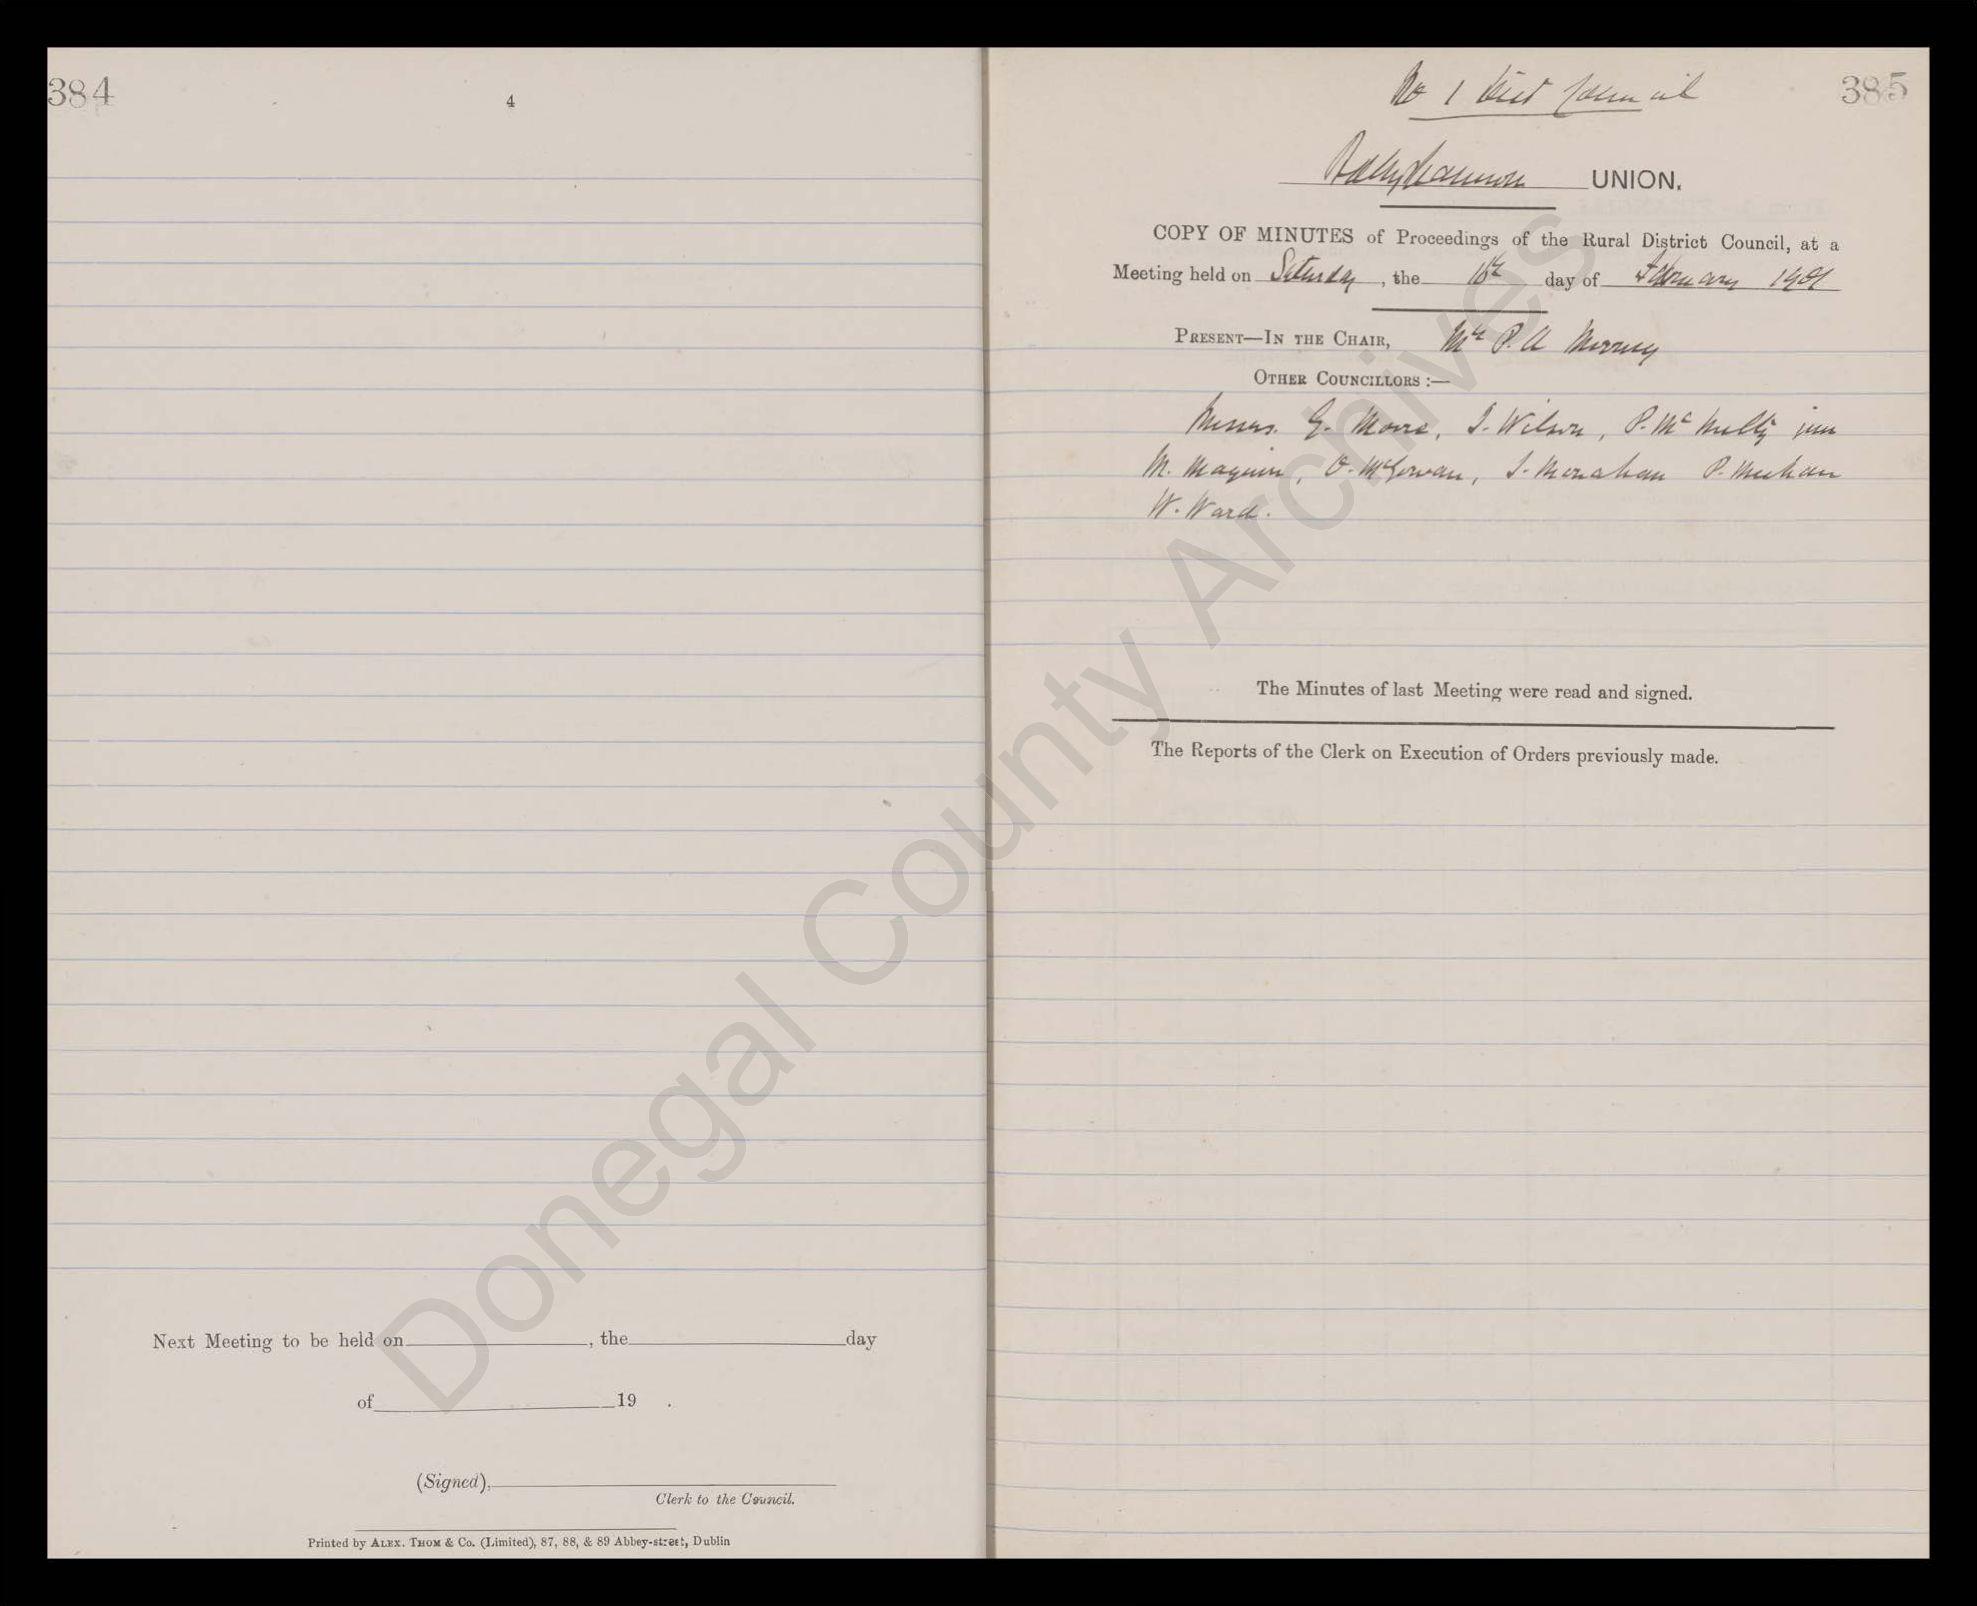 384
4
Next Meeting to be held on , the day
of 19 .
(Signed),
Clerk to the Council.
Printed by ALEX. THOM & Co. (Limited), 87, 88, & 89 Abbey-street, Dublin
385
No 1 Dist Council
Ballyshannon UNION.
COPY OF MINUTES of Proceedings of the Rural District Council, at a
Meeting held on Saturday, the day of February 1901
PRESENT—IN THE CHAIR, Mr P. A Murray
OTHER COUNCILLORS :—
Messrs. G. Moore, J. Wilson, P. McNulty jun
M. Maguire, O. McGowan, J. Monahan P. Meehan
W. Ward.
The Minutes of last Meeting were read and signed.
The Reports of the Clerk on Execution of Orders previously made.
Donegal County Archives